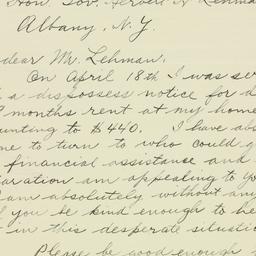 Hon. Gov. Herbert H. Lehman
Albany, N.Y.
dear Mr. Lehman.
On April 18th I was ser
a dispossess notice for
months rent at my home
unting to $440. I have abs
ne to turn to who could g
financial assistance and
am appealing to yo
am absolutely without any
you be kind enough to he
in this desperate situatio
Please be good enough